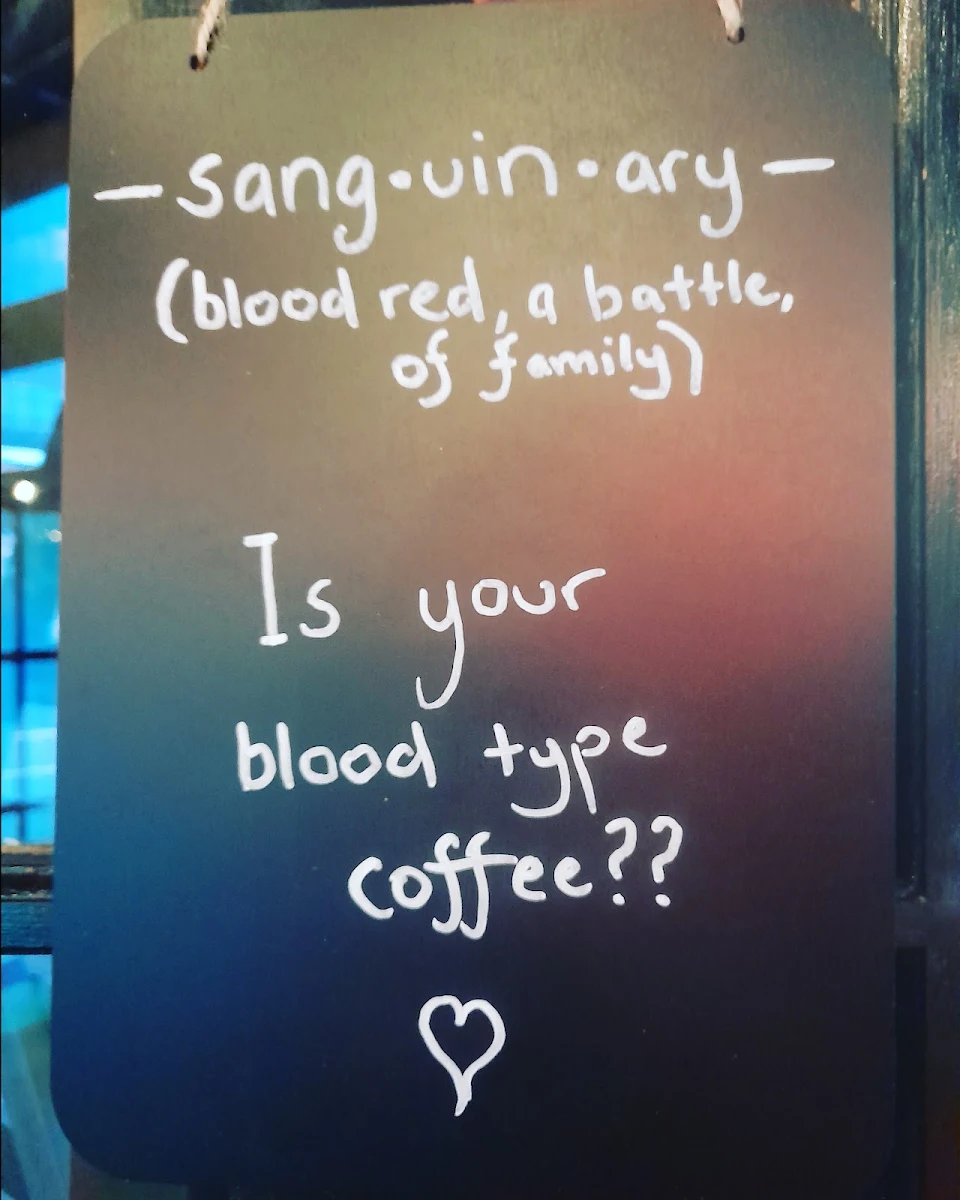 — sang•uin•ary —
(blood red, a battle,
of family)
Is your
blood type
coffee??